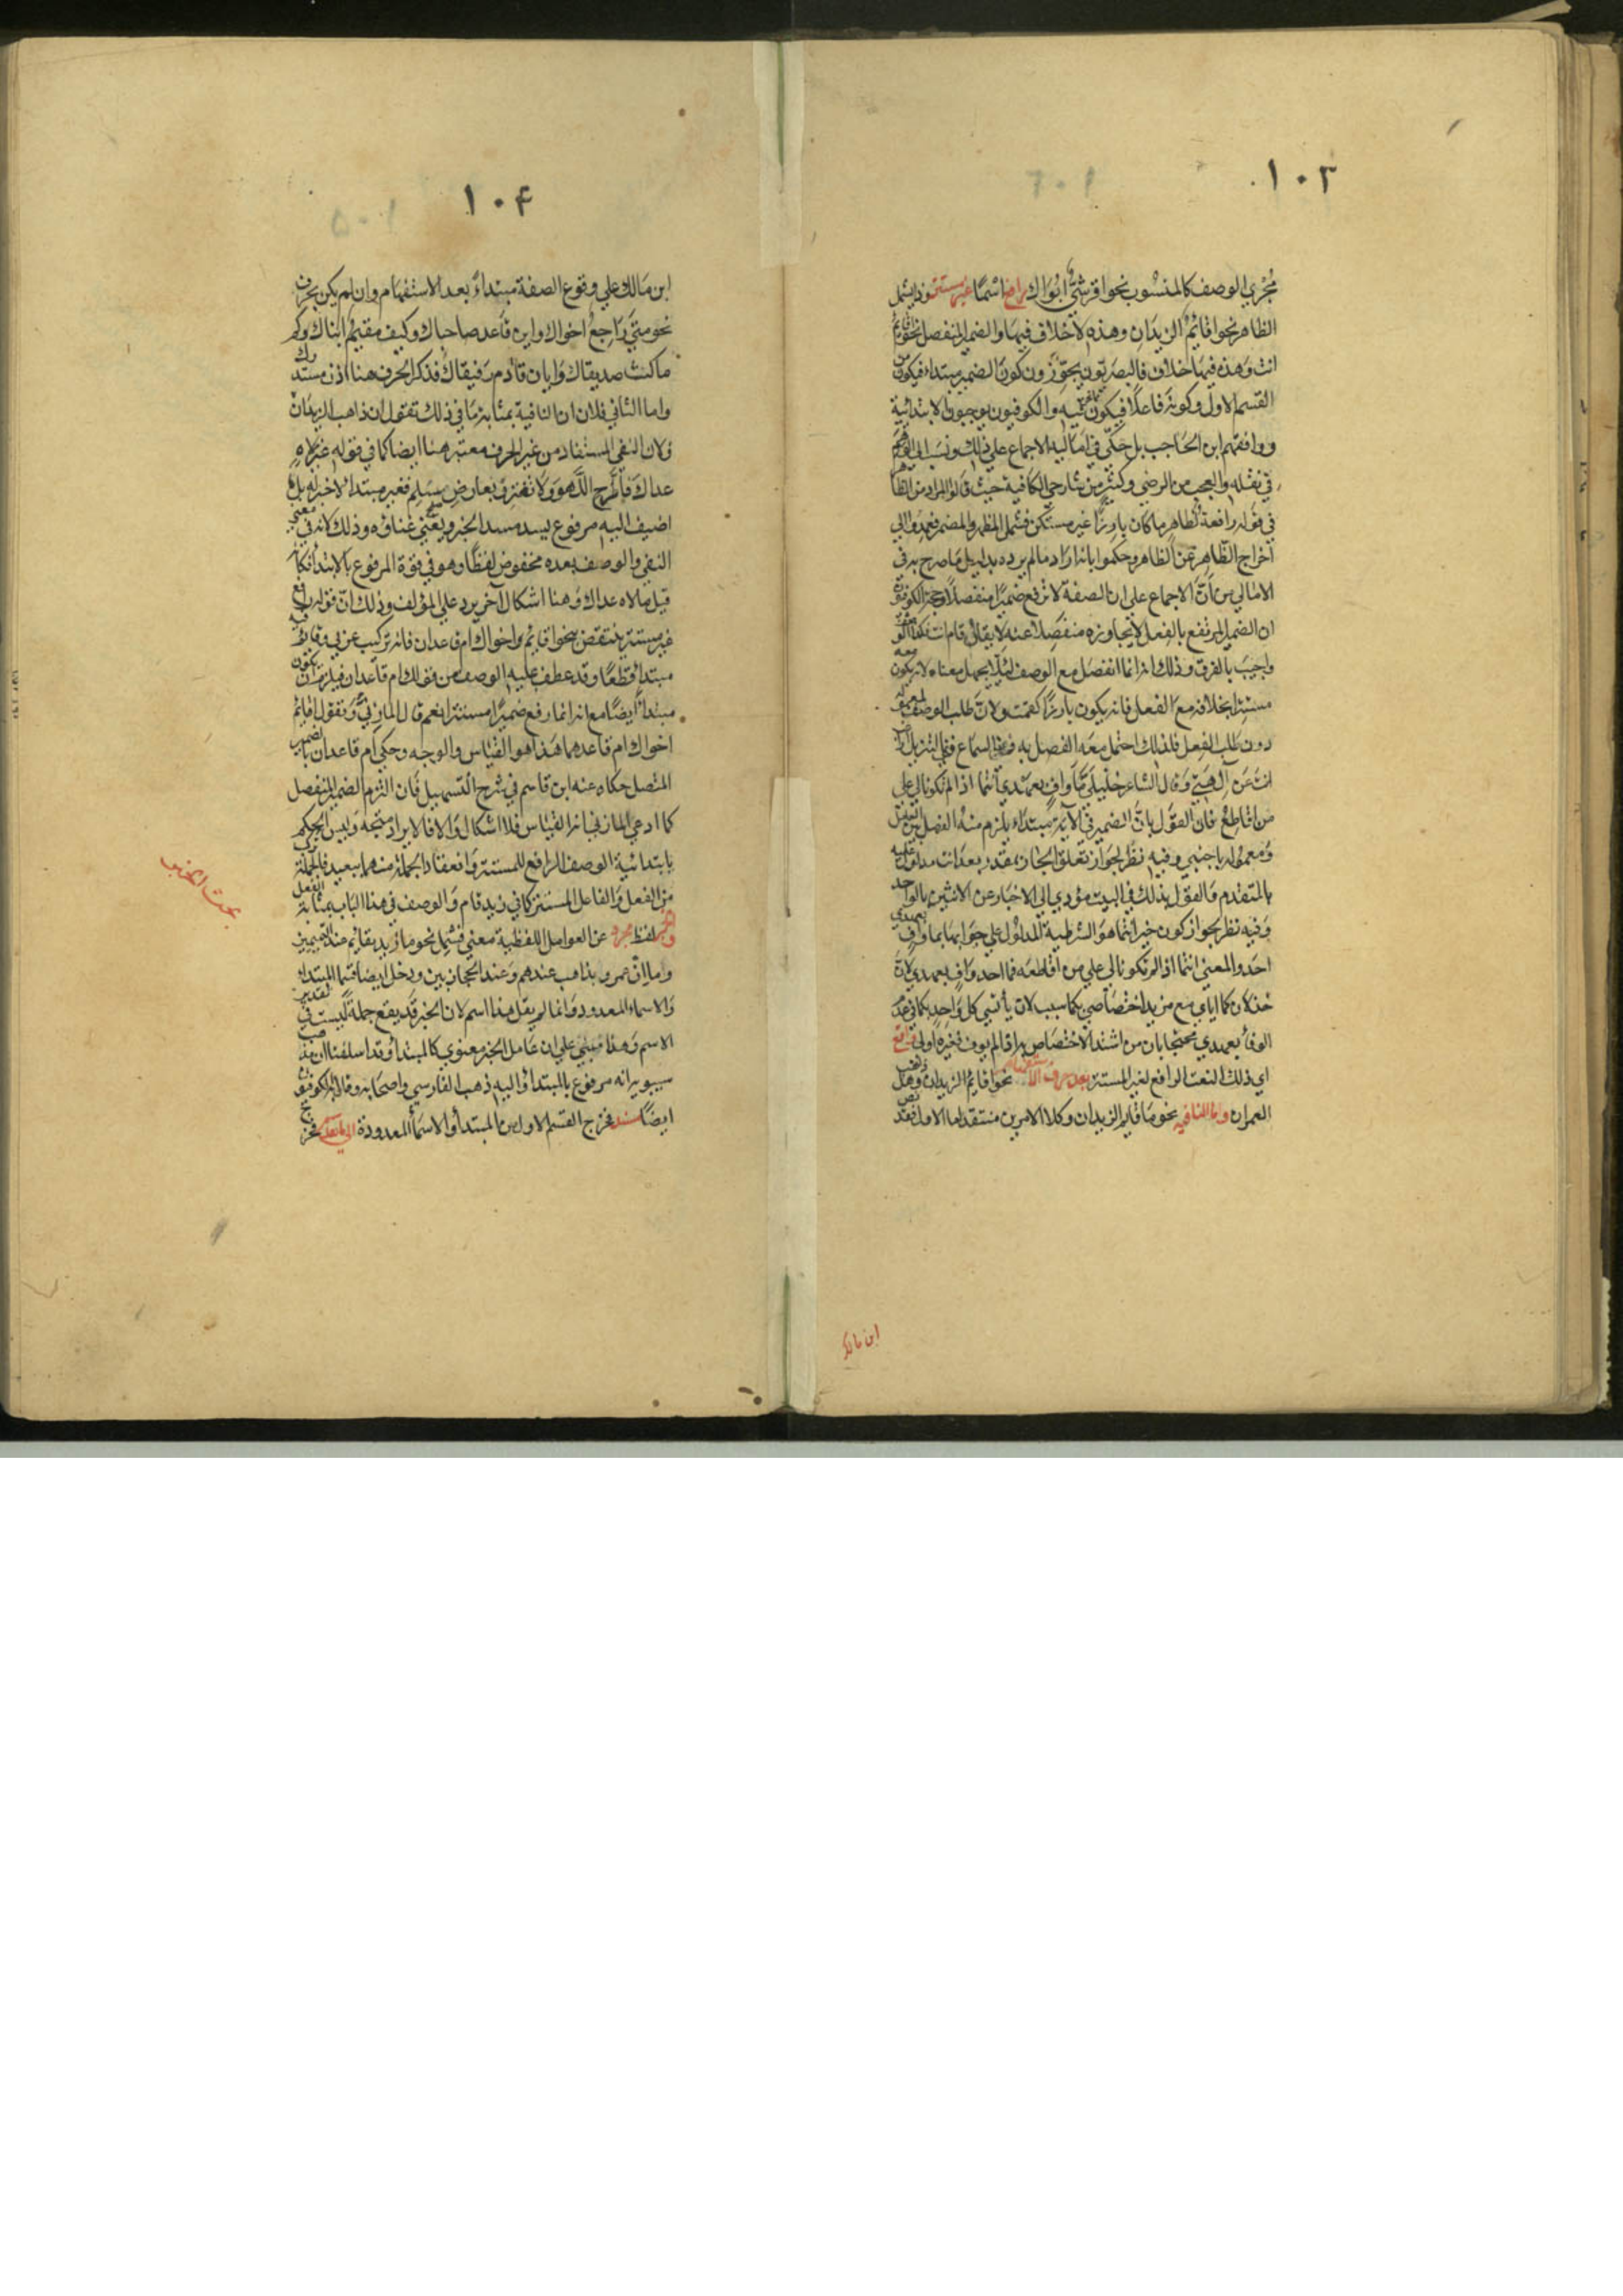 ١٠٣
مجرى الوصف كالمنسوب نحو اقرشي ابواك رافع اسما غير مستتر وذا يشمل
الظاهر نحو اقائم الزيدان وهذه لا خلاف فيها والضمير المنفصل نحو اقائم
انت وهذه فيها خلاف فالبصريون يجوزون كون الضمير مبتداء فيكون من
القسم الاول وكونه فاعلا فيكون فيه والكوفيون يوجبون الابتدائية
ووافقهم ابن الحاجب بل حكي في اماليه الاجماع على ذلك ونسب الى الوهم
في نقله والعجب من الرضي وكثير من شارحي الكافية حيث قالوا المراد من الظاهر
في قوله رافعة لظاهر ما كان بارزا غير مستكن فشمل المظهر والمضمر فعمدوا الى
اخراج الظاهر من الظاهر وحكموا بانه اراد ما لم يرده بدليل ما صرح به في
الامالي من ان الاجماع على ان الصفة لا ترفع ضميرا منفصلا وحجة الكوفيين
ان الضمير المرتفع بالفعل لا يجاوره منفصلا عنه لا يقال قام انت فكذا الوصف
واجيب بالفرق وذلك انه انما انفصل مع الوصف لئلا يجهل معناه لانه يكون معه
مستترا بخلافه مع الفعل فانه يكون بارزا كقمت ولان طلب الوصف لمعموله
دون طلب الفعل فلذلك احتمل معه الفصل به السماع ففي التنزيل اراغب
انت عن آلهتي وقال الشاعر خليلي ما واف بعهدي انتما اذا لم تكونا لي على
من اقاطع فان القول بان الضمير في الآية مبتداء يلزم منه الفصل بين العامل
ومعموله باجنبي وفيه نظر لجواز تعلق الجار بمقدر بعد انت مدلول عليه
بالمتقدم والقول بذلك في البيت مؤدي الى الاخبار عن الاثنين بالواحد
وفيه نظر لجواز كون خبر انتما هو الشرطية المدلول على جوابها بما واف بعهدي
احد والمعنى انتما اذا لم تكونا لي على من اقاطعه فما احد واف بعهدي لان
خذلانكما اياي مع مزيد اختصاصي بكما سبب لان يأتسي كل واحد بكما في عدم
الوفاء بعهدي محتجا بان من اشتد الاختصاص به اذا لم يوف فغيره اولى واقع
اي ذلك النعت الرافع لغير المستتر بعد حرف الاستفهام نحو اقائم الزيدان وهل
العمران وما النافية نحو ما قائم الزيدان وكلا الامرين منتقد اما الاول فقد نص
ابن مالك
١٠۴
ابن مالك على وقوع الصفة مبتداء بعد الاستفهام وان لم يكن بحرف
نحو متى راجع اخواك واين قاعد صاحباك وكيف مقيم ابناك وكم
ماكث صديقاك وايان قادم رفيقاك فذكر الحرف هنا اذن مستدرك
واما الثاني فلان ان النافية بمثابة ما في ذلك تقول ان ذاهب الزيدان
ولان النفي المستفاد من غير الحرف معتبر هنا ايضا كما في قوله غير لاه
عداك فاطرح اللهو ولا تغترر بعارض سلم فغير مبتدا لا خبر له بل لما
اضيف اليه مرفوع يسد مسد الخبر ويغني غناؤه وذلك لانه في معنى
النفي والوصف بعده مخفوض لفظا وهو في قوة المرفوع بالابتدا فكانه
قيل ما لاه عداك وهنا اشكال آخر يرد على المؤلف وذلك ان قوله رافع
غير مستتر ينتقض بنحو اقائم اخواك ام قاعدان فانه تركيب عربي وقائم فيه
مبتدأ قطعا وقد عطف عليه الوصف من قولك ام قاعدان فيلزم ان يكون
مبتدأ ايضا مع انه انما رفع ضميرا مستترا نعم قال المازني وتقول اقائم
اخواك ام قاعد هما هذا هو القياس والوجه وحكي ام قاعدان بالضمير
المتصل حكاه عنه ابن قاسم في شرح التسهيل فان التزم الضمير المنفصل
كما ادعى المازني انه القياس فلا اشكال والا فالايراد متجه وليس الحكم
بابتدائية الوصف الرافع للمستتر وانعقاد الجملة منهما ببعيد فالجملة
من الفعل والفاعل المستتر كما في زيد قام والوصف في هذا الباب بمثابة الفعل
والخبر لفظ مجرد عن العوامل اللفظية معنى فشمل نحو ما زيد بقائم عند التميميين
وما ان عمرو بذاهب عندهم وعند الحجازيين ودخل ايضا قسما المبتدا
والاسماء المعدودة وانما لم يقل هنا اسم لان الخبر قد يقع جملة ليست في تقدير
الاسم وهذا مبني على ان عامل الخبر معنوي كالمبتدأ وقد اسلفنا ان مذهب
سيبويه انه مرفوع بالمبتدأ واليه ذهب الفارسي واصحابه وقال به الكوفيون
ايضا مسند فخرج القسم الاول من المبتدأ والاسماء المعدودة فخرج
بحث الخبر